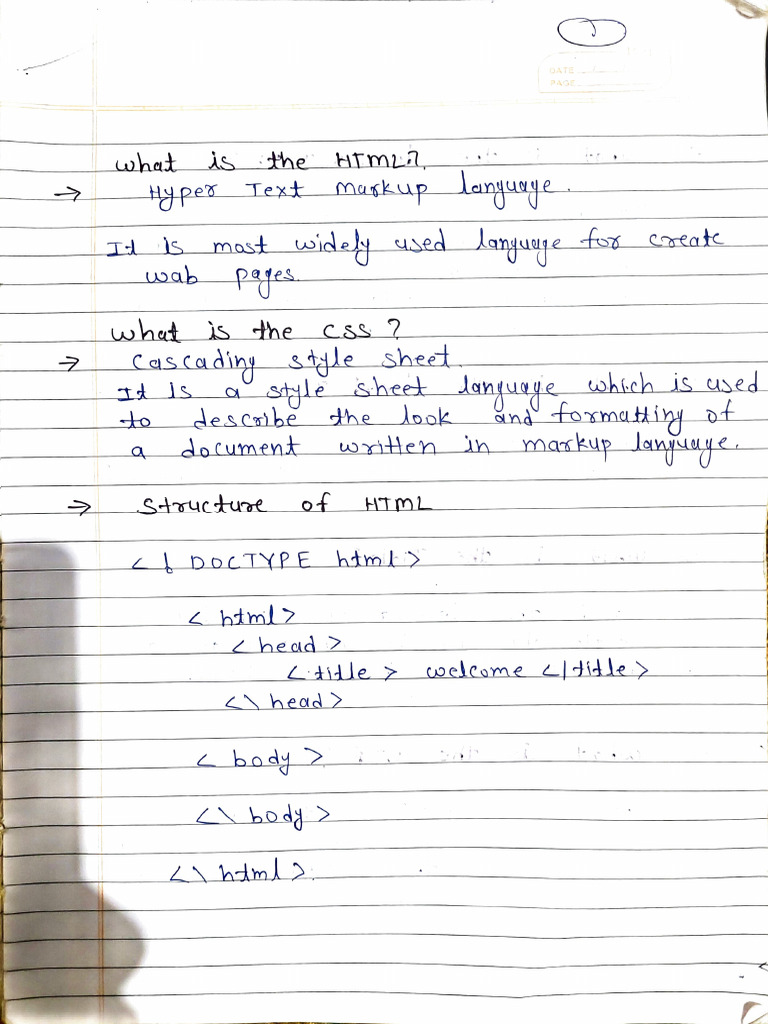 DATE
PAGE
what is the HTML?
→ Hyper Text markup language.
It is most widely used language for create
wab pages.
what is the css ?
→ Cascading style sheet.
It is a style sheet language which is used
to describe the look and formatting of
a document written in markup language.
→ Structure of HTML
<! DOCTYPE html>
< html>
< head >
< title > welcome </title >
<\ head >
< body >
<\ body >
<\ html >